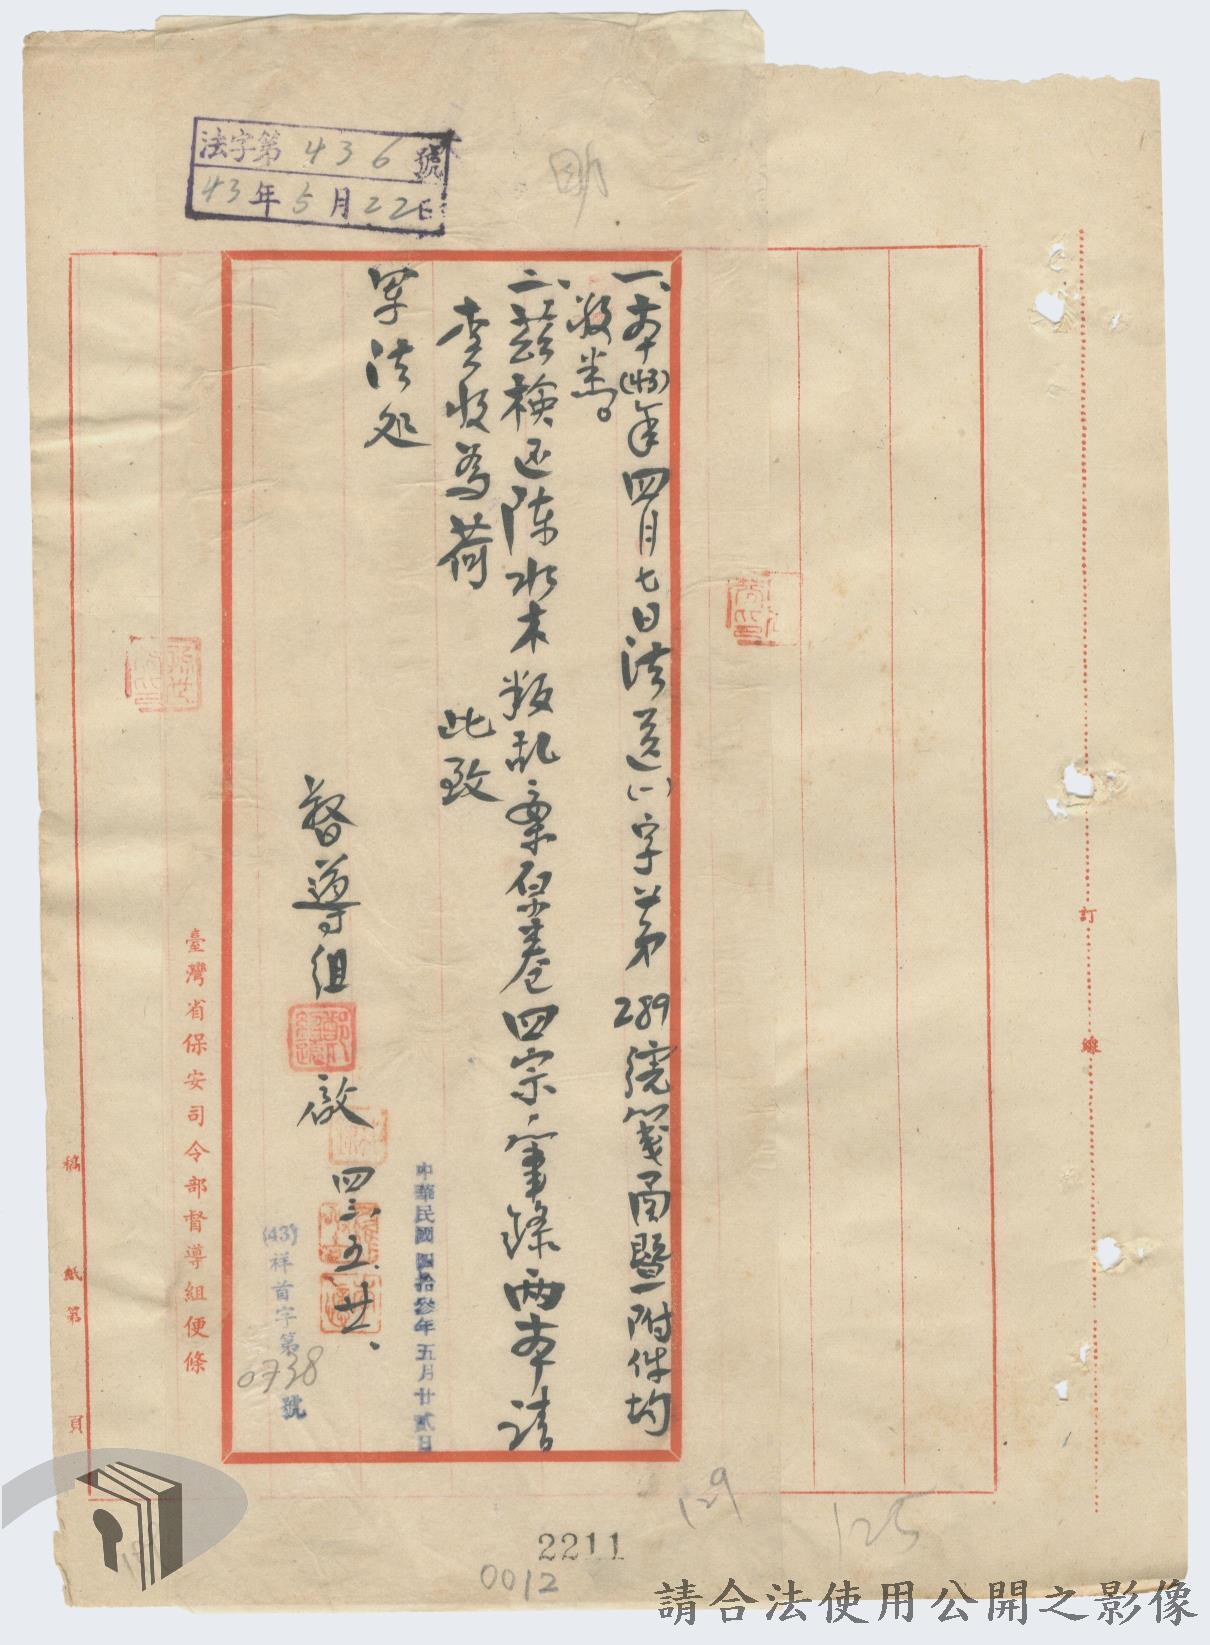 法字第436號
43年5月22日
一、本(43)年四月七日法道(一)字第289號箋函暨附件均
敬悉。
二、茲檢还陈水木叛乱案原卷四宗、筆錄两本请
查收為荷 此致
军法处
督導組 啟 四三、五、廿一、
中華民國四拾參年五月廿貳日
(43)祥首字第0738號
臺灣省保安司令部督導組便條
稿紙第 頁
訂線
129
125
2211
0012
請合法使用公開之影像